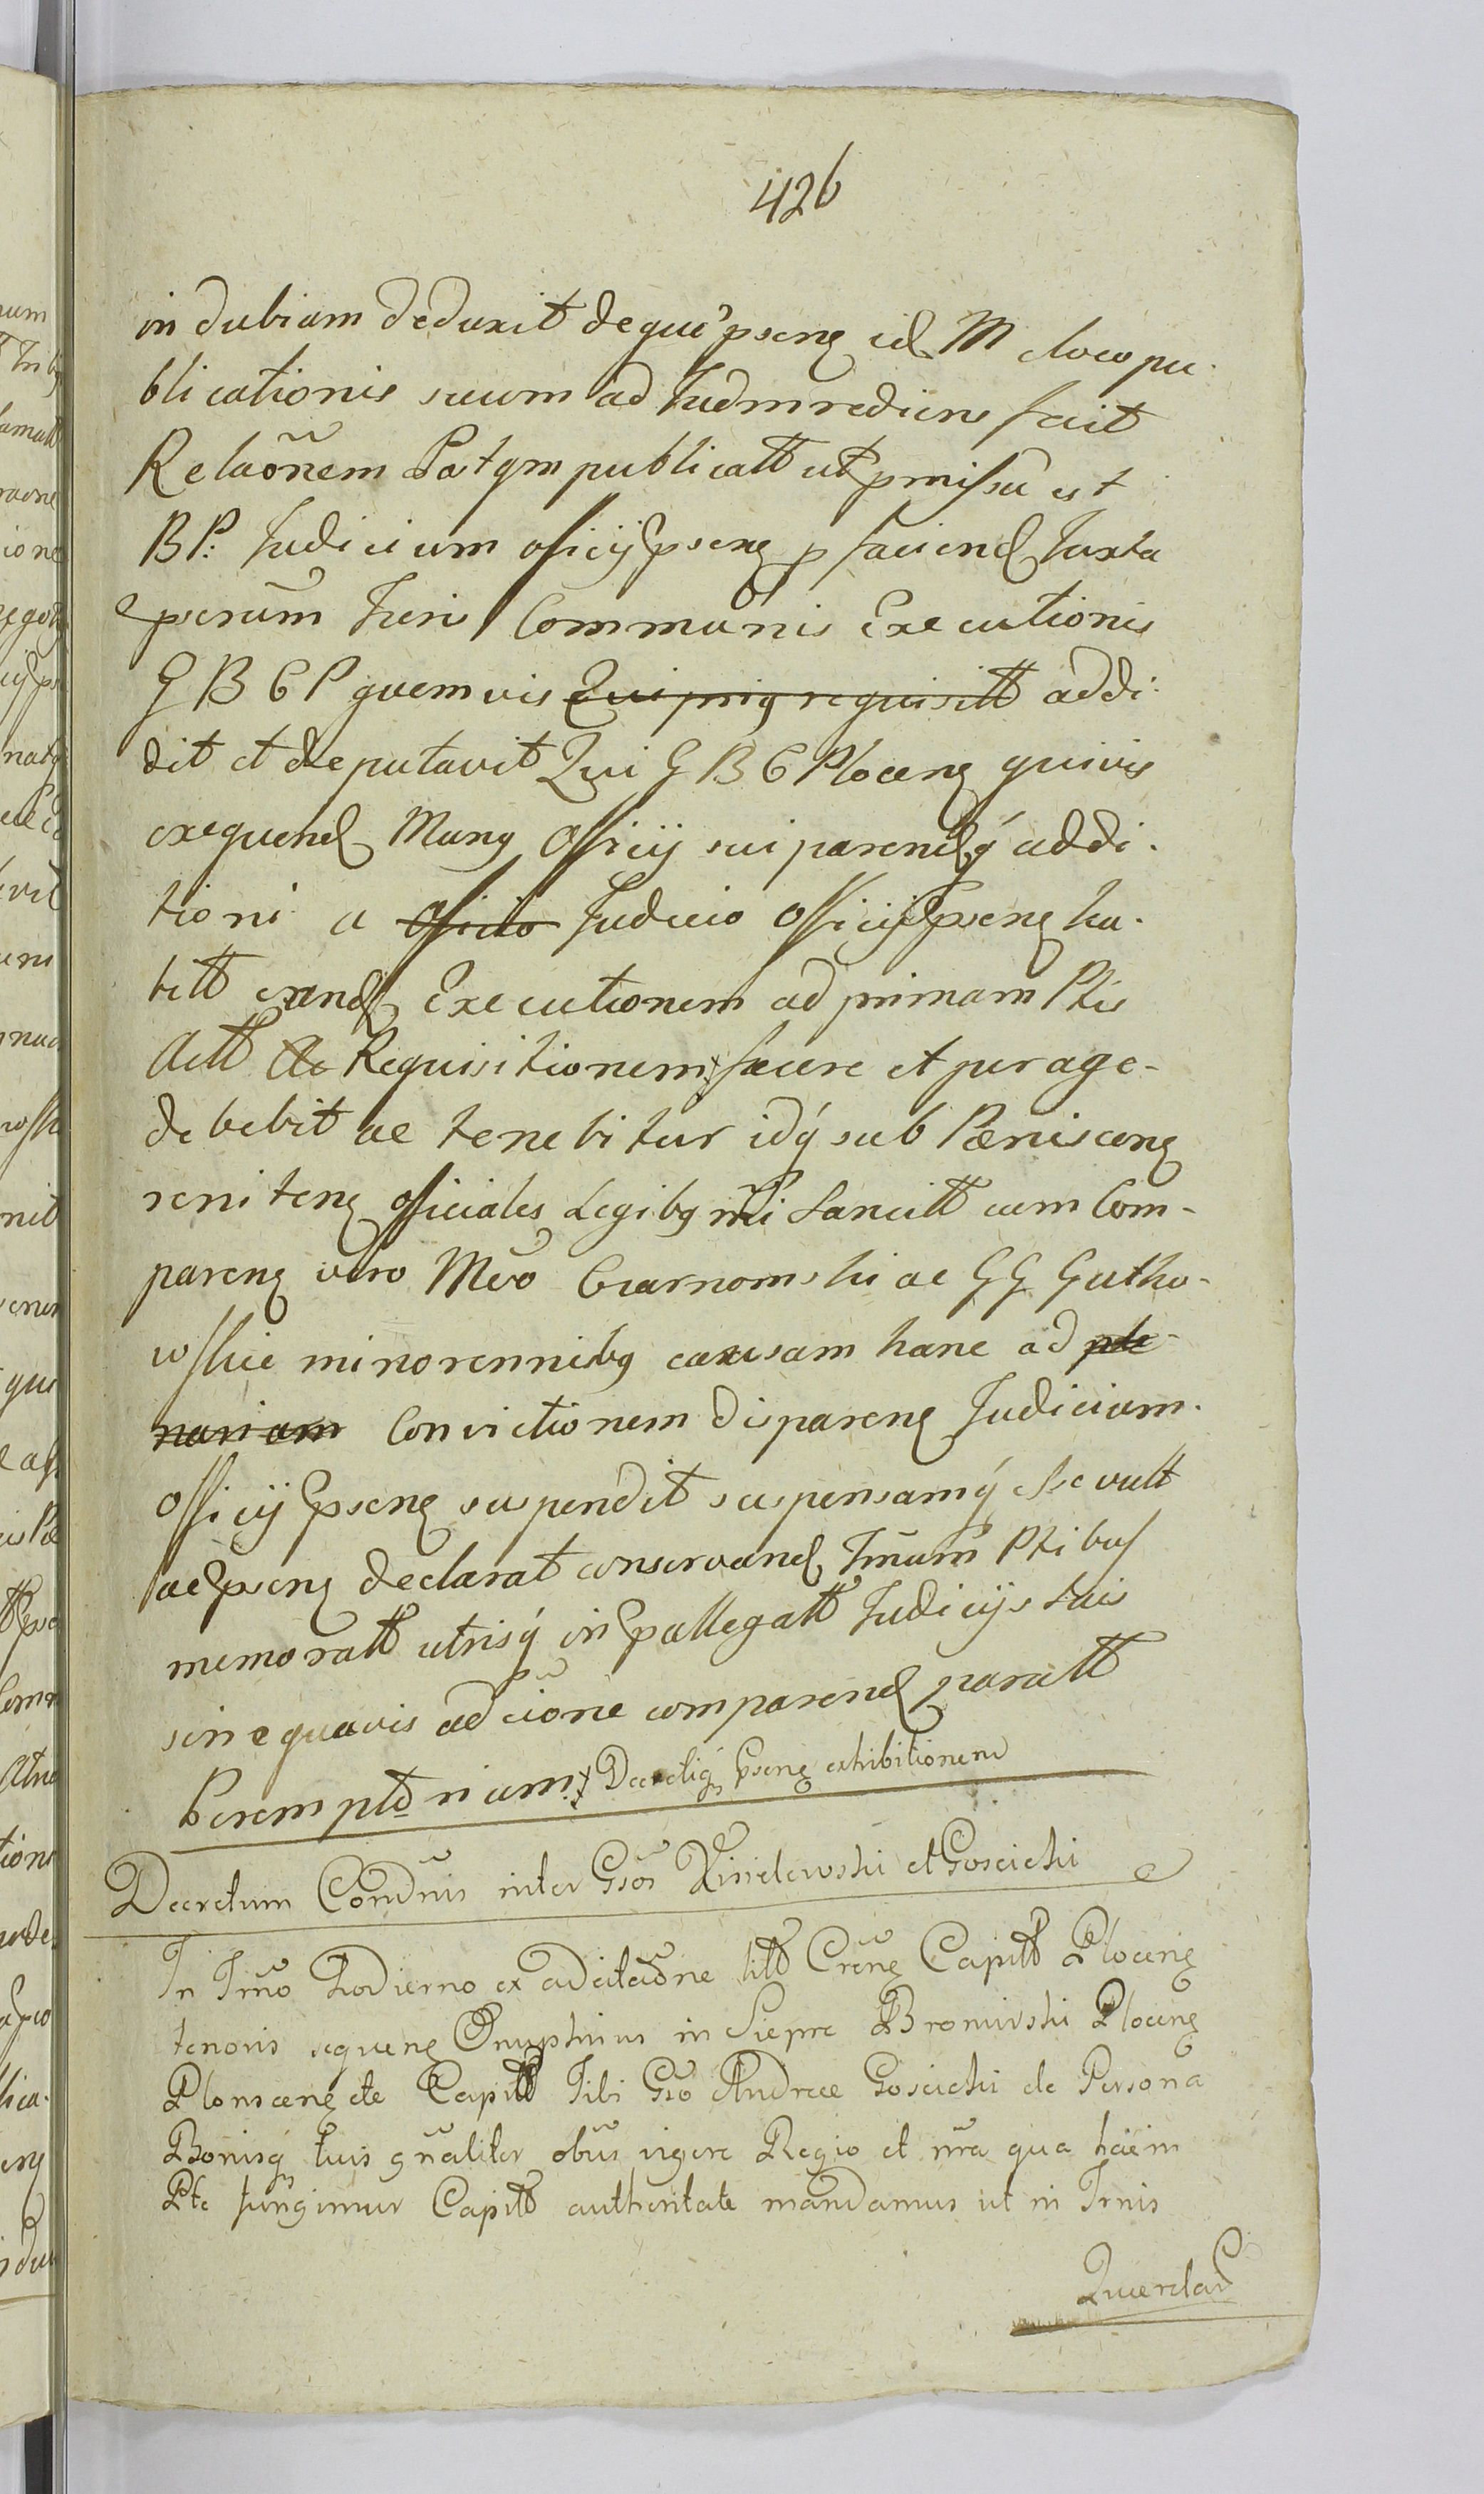 426
in dubiam deduxit deque pseng id M e loco pu-
blicationis suum ad Iudm rediens fecit
Relaõnem Postqm publicatt ut pmissũ est
BP: Iudicium officij pseng p faciend Iuxta
pscrũm Iuris Communis Executionis
G B C P quemvis Qui prig requisitt addi-
dit et deputavit Qui G B C Ploceng quivis
exequend Mung Officij sui parendq addi-
tioni a Officio Iudicio Officij Pseng ha-
bitt Executionem ad primam Ptis
Actt Ac Requisitionem facere et perage-
debebit ac tenebitur idq sub Pænis
reniteng officiales Legibg sancitt cum Com-
pareng vero Mco Czarnomski ac GG Gutko-
wskie minorennibg causam hanc ad ple-
nariam Convictionem dispareng Iudicium
Officij Pseng suspendit suspensamq esse vult
ac pseng declarat conservand Tmũm Ptibus
memoratt utrisq in pallegatt Iudicijs suis
sine quavis adcĩone comparend paratt
Peremptorium Decretiq Pseng exhibitionem
Decretum Condñis inter Gsos Kisielewski et Goscicki
In Trño hodierno ex adcitaõne litt Creng Capitt Ploceng
tenoris sequeng Onuphrius in Sieprc Bromirski Ploceng
Plonsceng etc Capitt Tibi Gso Andreæ Goscicki de Persona
Bonisq tuis gñaliter obũs vigore Regio et ñra qua hacin
Pte fungimur Capitt authoritate mandamus ut in Trnis
Querelar